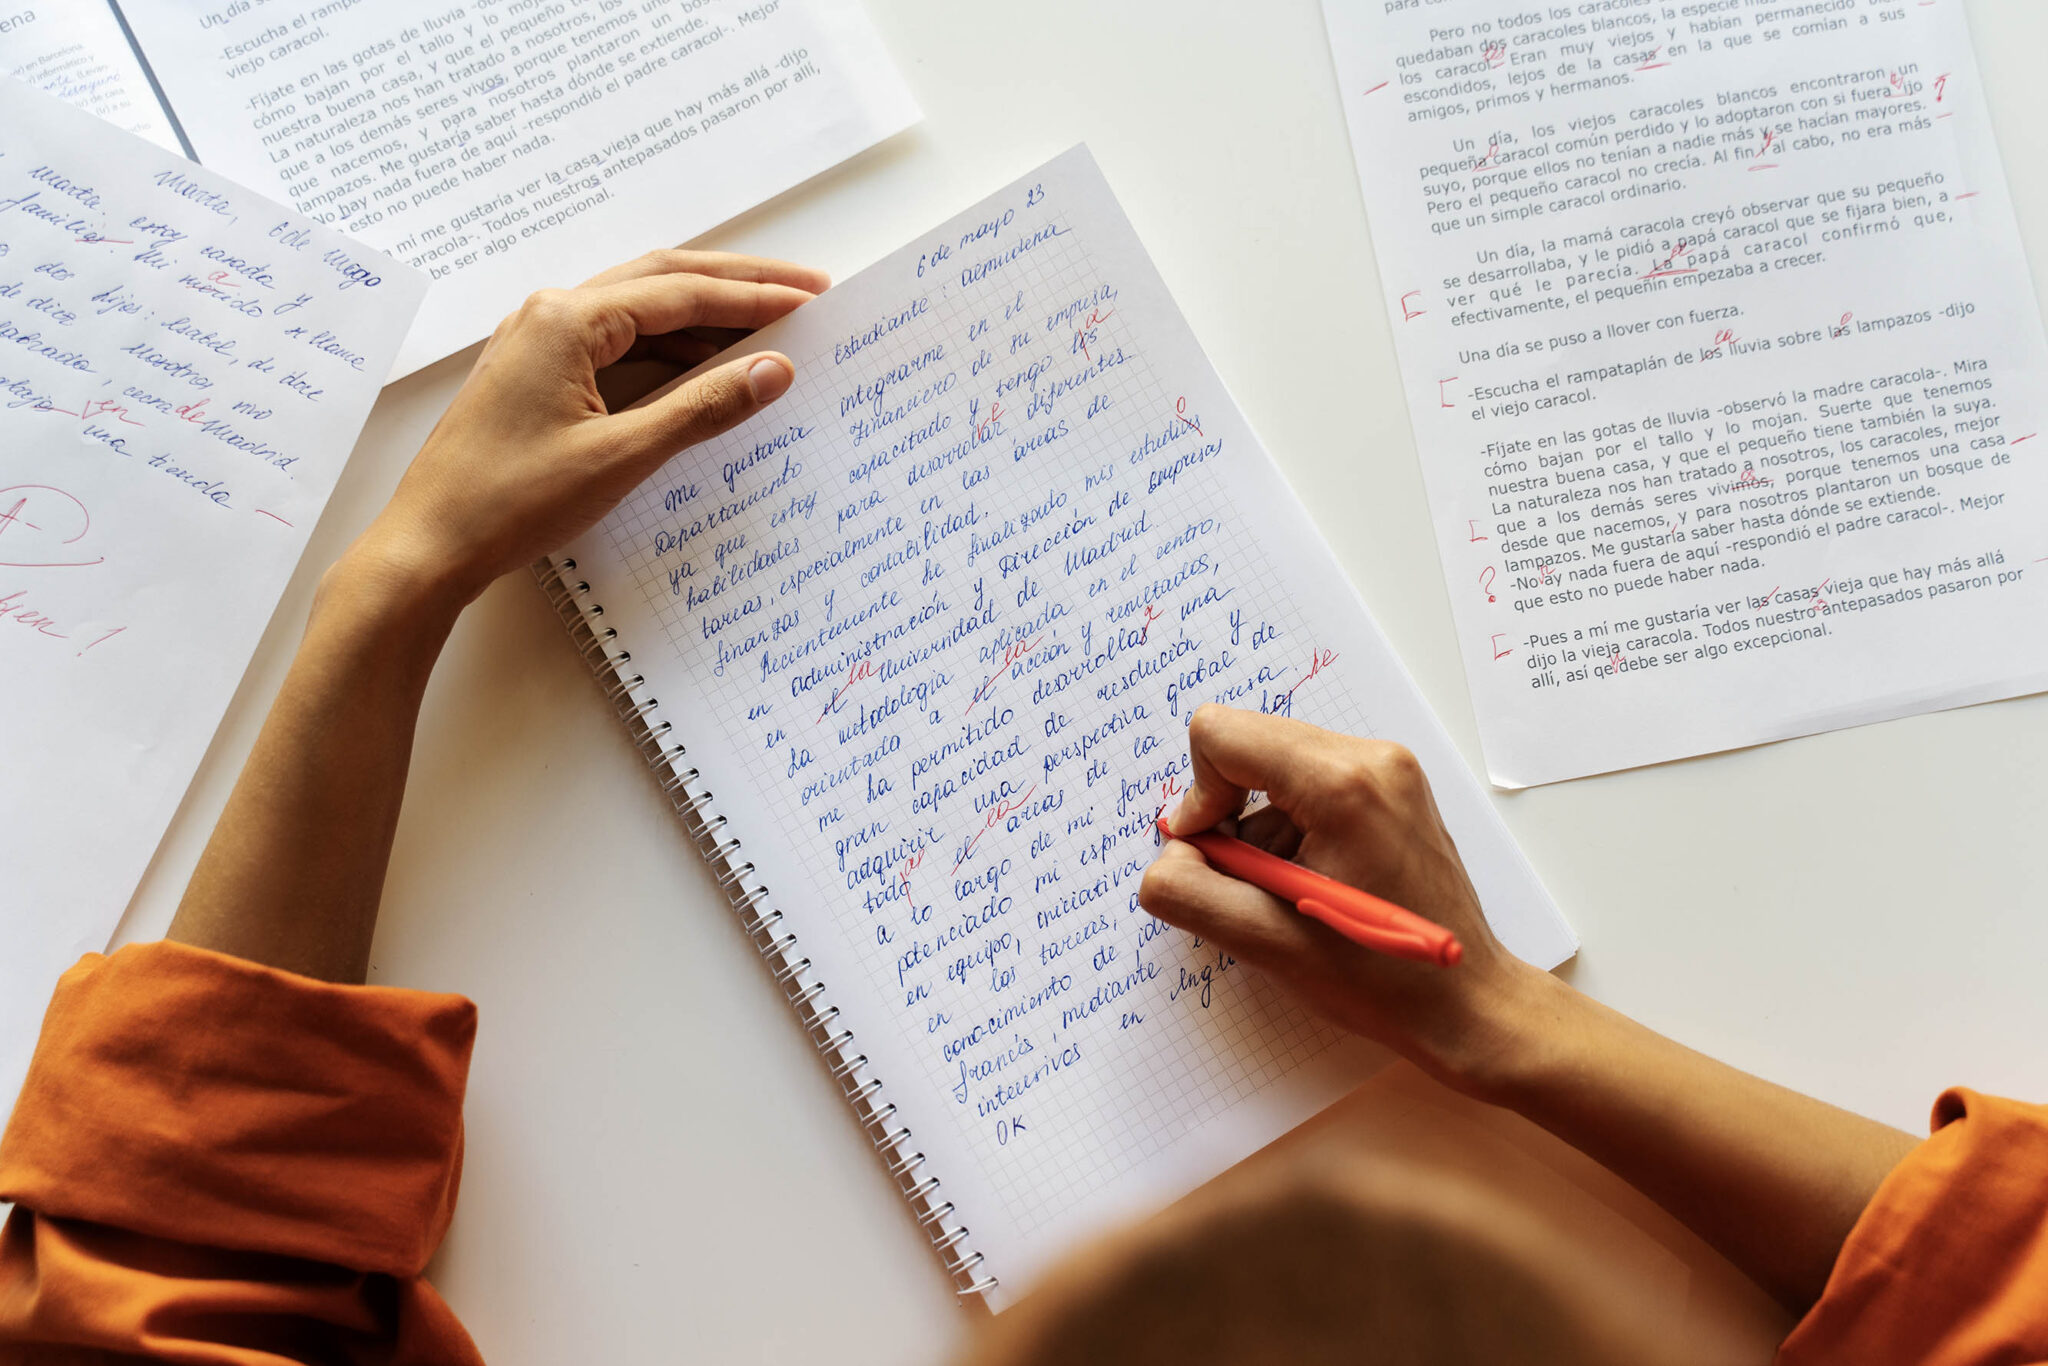 ena
en Barcelona
informático y
(Levan
de casa
a su
Un día s
-Escucha el rampa
viejo caracol.
-Fíjate en las gotas de lluvia -ob
cómo bajan por el tallo y lo mojan.
nuestra buena casa, y que el pequeño t
La naturaleza nos han tratado a nosotros, los
que a los demás seres vivos, porque tenemos un
que nacemos, y para nosotros plantaron un bos
lampazos. Me gustaría saber hasta dónde se extiende.
-No hay nada fuera de aquí -respondió el padre caracol-. Mejor
esto no puede haber nada.
a mí me gustaría ver la casa vieja que hay más allá -dijo
aracola-. Todos nuestros antepasados pasaron por allí,
be ser algo excepcional.
Marta, 6 de Mayo
Marta. estoy casada y
familiar. Mi marido se llama
a
dos hijos: Isabel, de doce
de diez Nosotros vivo
cerca de Madrid.
en una tienda
A-
bien!
6 de mayo 23
Estudiante: Almudena
Me gustaria integrarme en el
Departamento Financiero de su empresa,
ya que estoy capacitado y tengo los
a
habilidades para desarrollar diferentes
e
tareas, especialmente en las áreas de
finanzas y contabilidad.
Recientemente he finalizado mis estudios
o
en administración y Dirección de Empresas
en el Universidad de Madrid.
la
La metodología aplicada en el centro,
orientada a el acción y resultados,
la
me ha permitido desarrollar una
gran capacidad de resolución y
adquirir una perspectiva global de
todo el áreas de la empresa.
as la
a lo largo de mi formac hay he
potenciado mi espiritu
en equipo, iniciativa y
en los tareas, a
conocimiento de idi
francés, mediante
intensivos en Ingl
OK
Pero no todos los caracoles
quedaban dos caracoles blancos, la especie más
los caracol. Eran muy viejos y habían permanecido bien
escondidos, lejos de la casas en la que se comían a sus
amigos, primos y hermanos.
Un día, los viejos caracoles blancos encontraron un
pequeña caracol común perdido y lo adoptaron con si fuera ijo
suyo, porque ellos no tenían a nadie más y se hacían mayores.
Pero el pequeño caracol no crecía. Al fin i al cabo, no era más
que un simple caracol ordinario.
Un día, la mamá caracola creyó observar que su pequeño
se desarrollaba, y le pidió a papá caracol que se fijara bien, a
ver qué le parecía. La papá caracol confirmó que,
efectivamente, el pequeñín empezaba a crecer.
Una día se puso a llover con fuerza.
-Escucha el rampataplán de los lluvia sobre las lampazos -dijo
la
el viejo caracol.
-Fíjate en las gotas de lluvia -observó la madre caracola-. Mira
cómo bajan por el tallo y lo mojan. Suerte que tenemos
nuestra buena casa, y que el pequeño tiene también la suya.
La naturaleza nos han tratado a nosotros, los caracoles, mejor
que a los demás seres vivimos, porque tenemos una casa
desde que nacemos, y para nosotros plantaron un bosque de
lampazos. Me gustaría saber hasta dónde se extiende.
?
-No ay nada fuera de aquí -respondió el padre caracol-. Mejor
que esto no puede haber nada.
-Pues a mí me gustaría ver las casas vieja que hay más allá
dijo la vieja caracola. Todos nuestro antepasados pasaron por
allí, así qe debe ser algo excepcional.